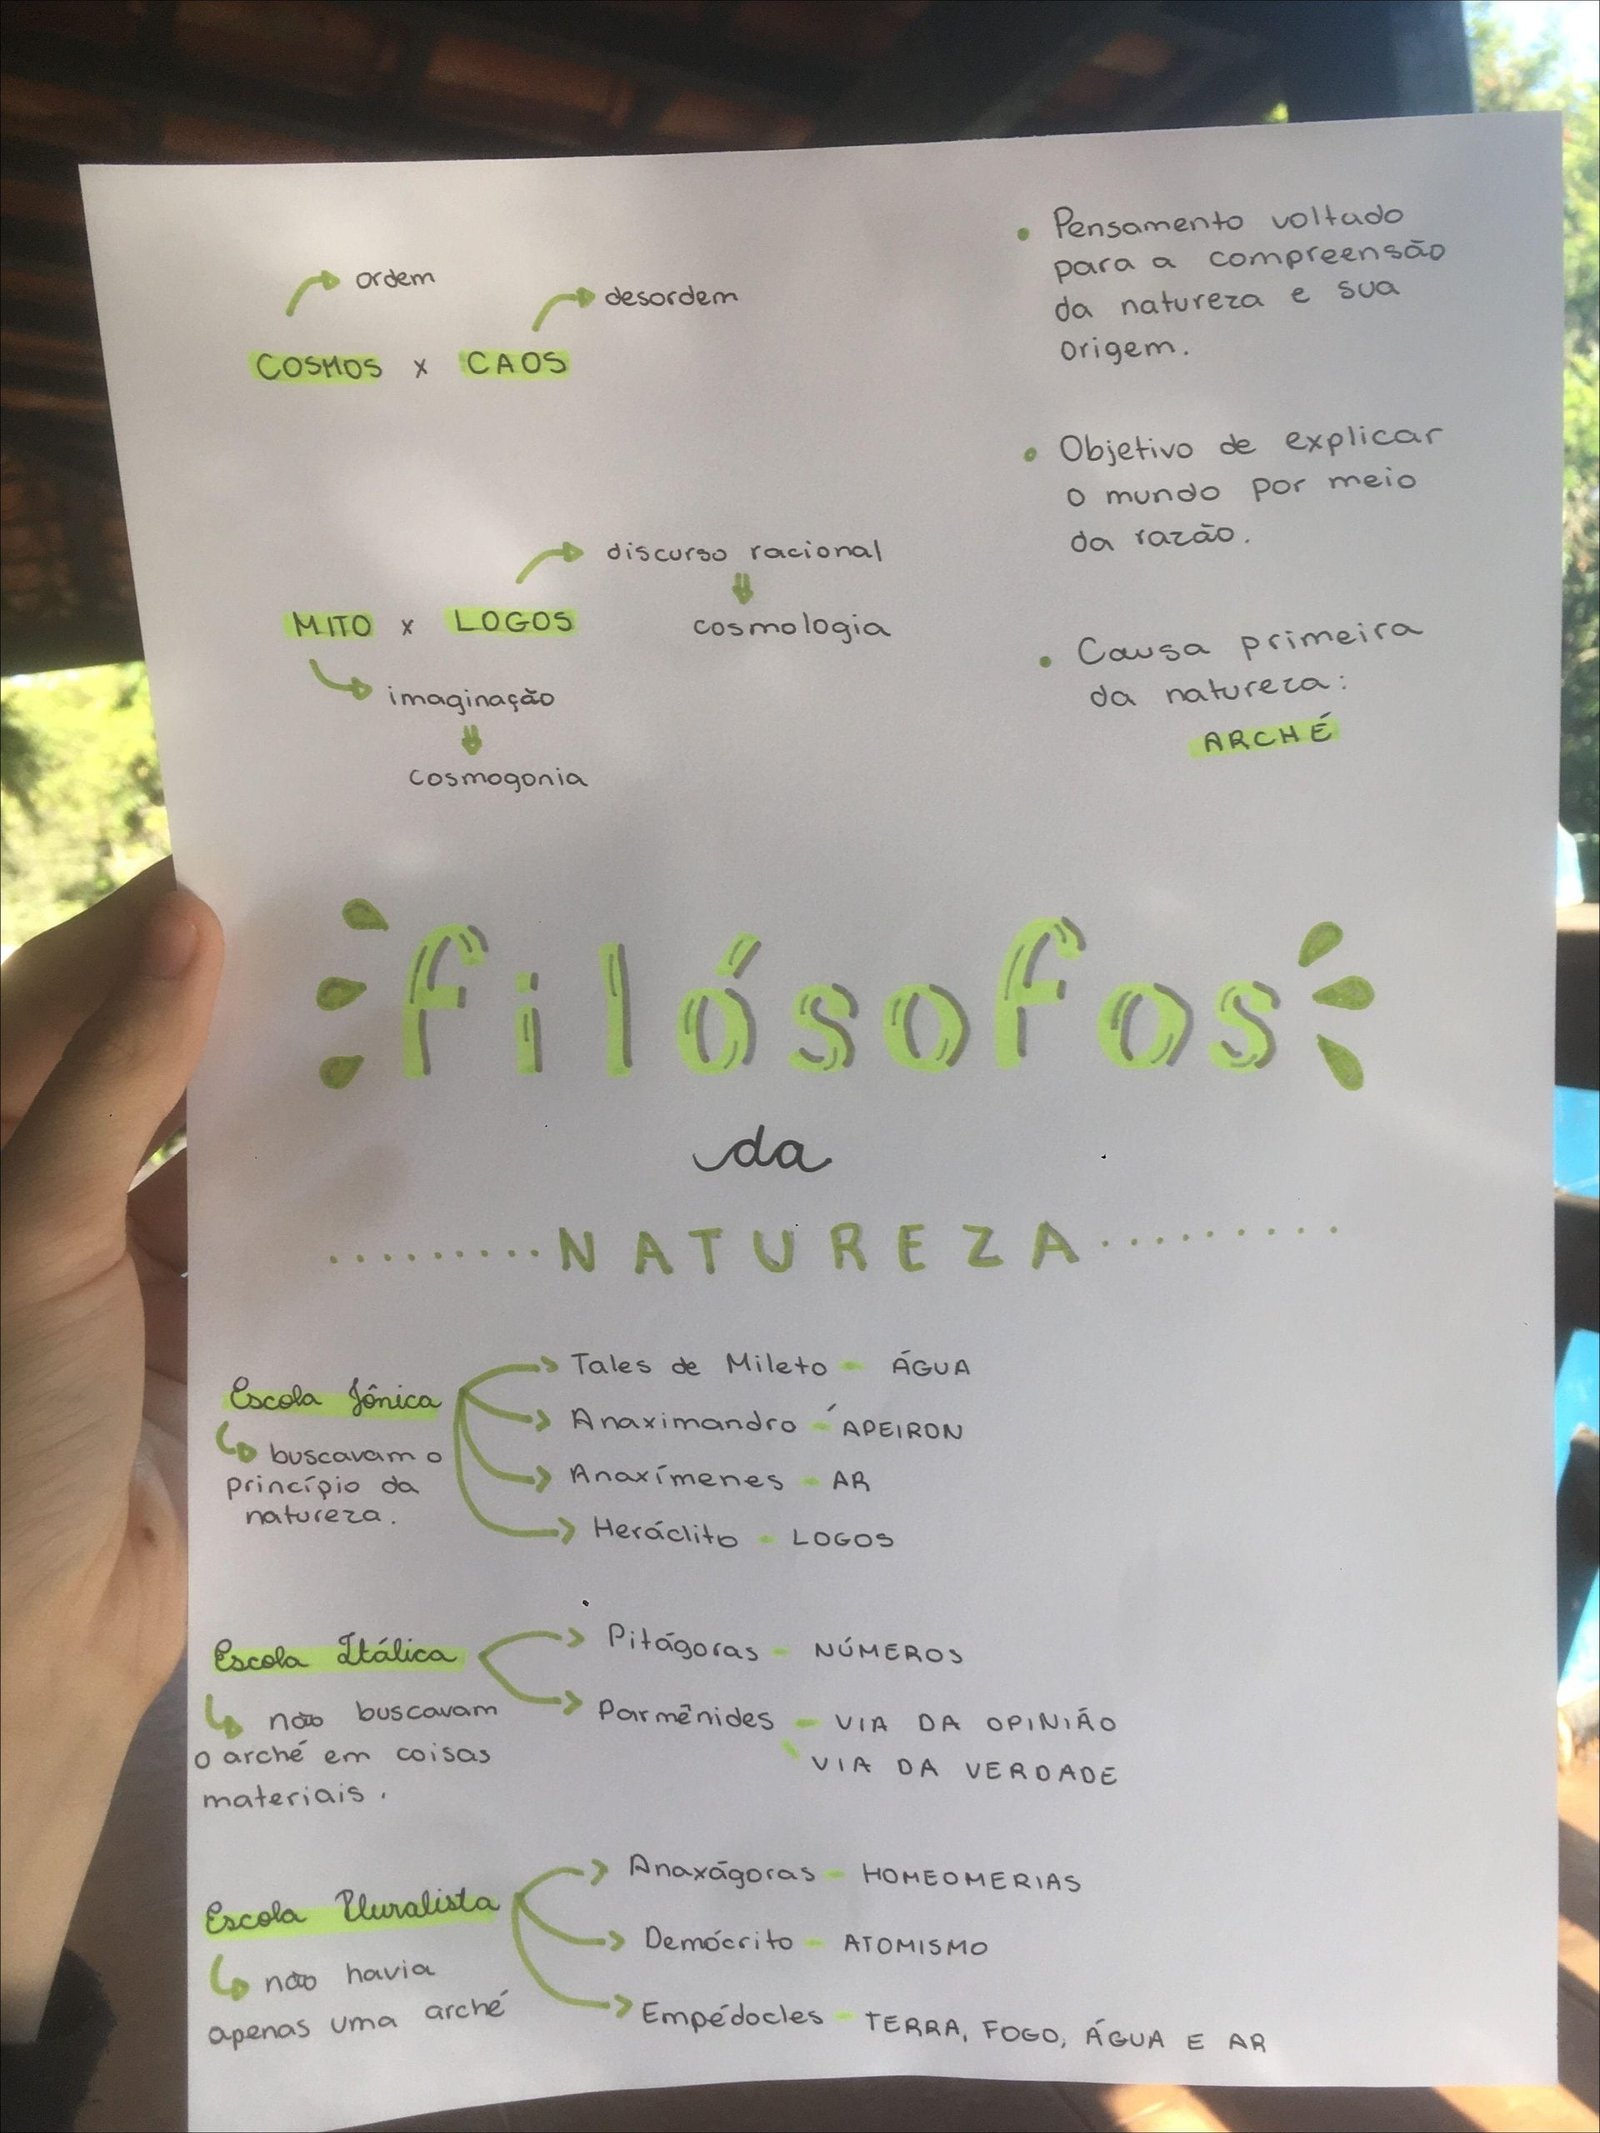 ordem
desordem
COSMOS x CAOS
discurso racional
MITO x LOGOS
cosmologia
imaginação
cosmogonia
• Pensamento voltado
para a compreensão
da natureza e sua
origem.
• Objetivo de explicar
o mundo por meio
da razão.
• Causa primeira
da natureza:
ARCHÉ
filósofos
da
NATUREZA
Escola Jônica
buscavam o
princípio da
natureza.
Tales de Mileto - ÁGUA
Anaximandro - ÁPEIRON
Anaxímenes - AR
Heráclito - LOGOS
Escola Itálica
não buscavam
o arché em coisas
materiais.
Pitágoras - NÚMEROS
Parmênides - VIA DA OPINIÃO
VIA DA VERDADE
Escola Pluralista
não havia
apenas uma arché
Anaxágoras - HOMEOMERIAS
Demócrito - ATOMISMO
Empédocles - TERRA, FOGO, ÁGUA E AR